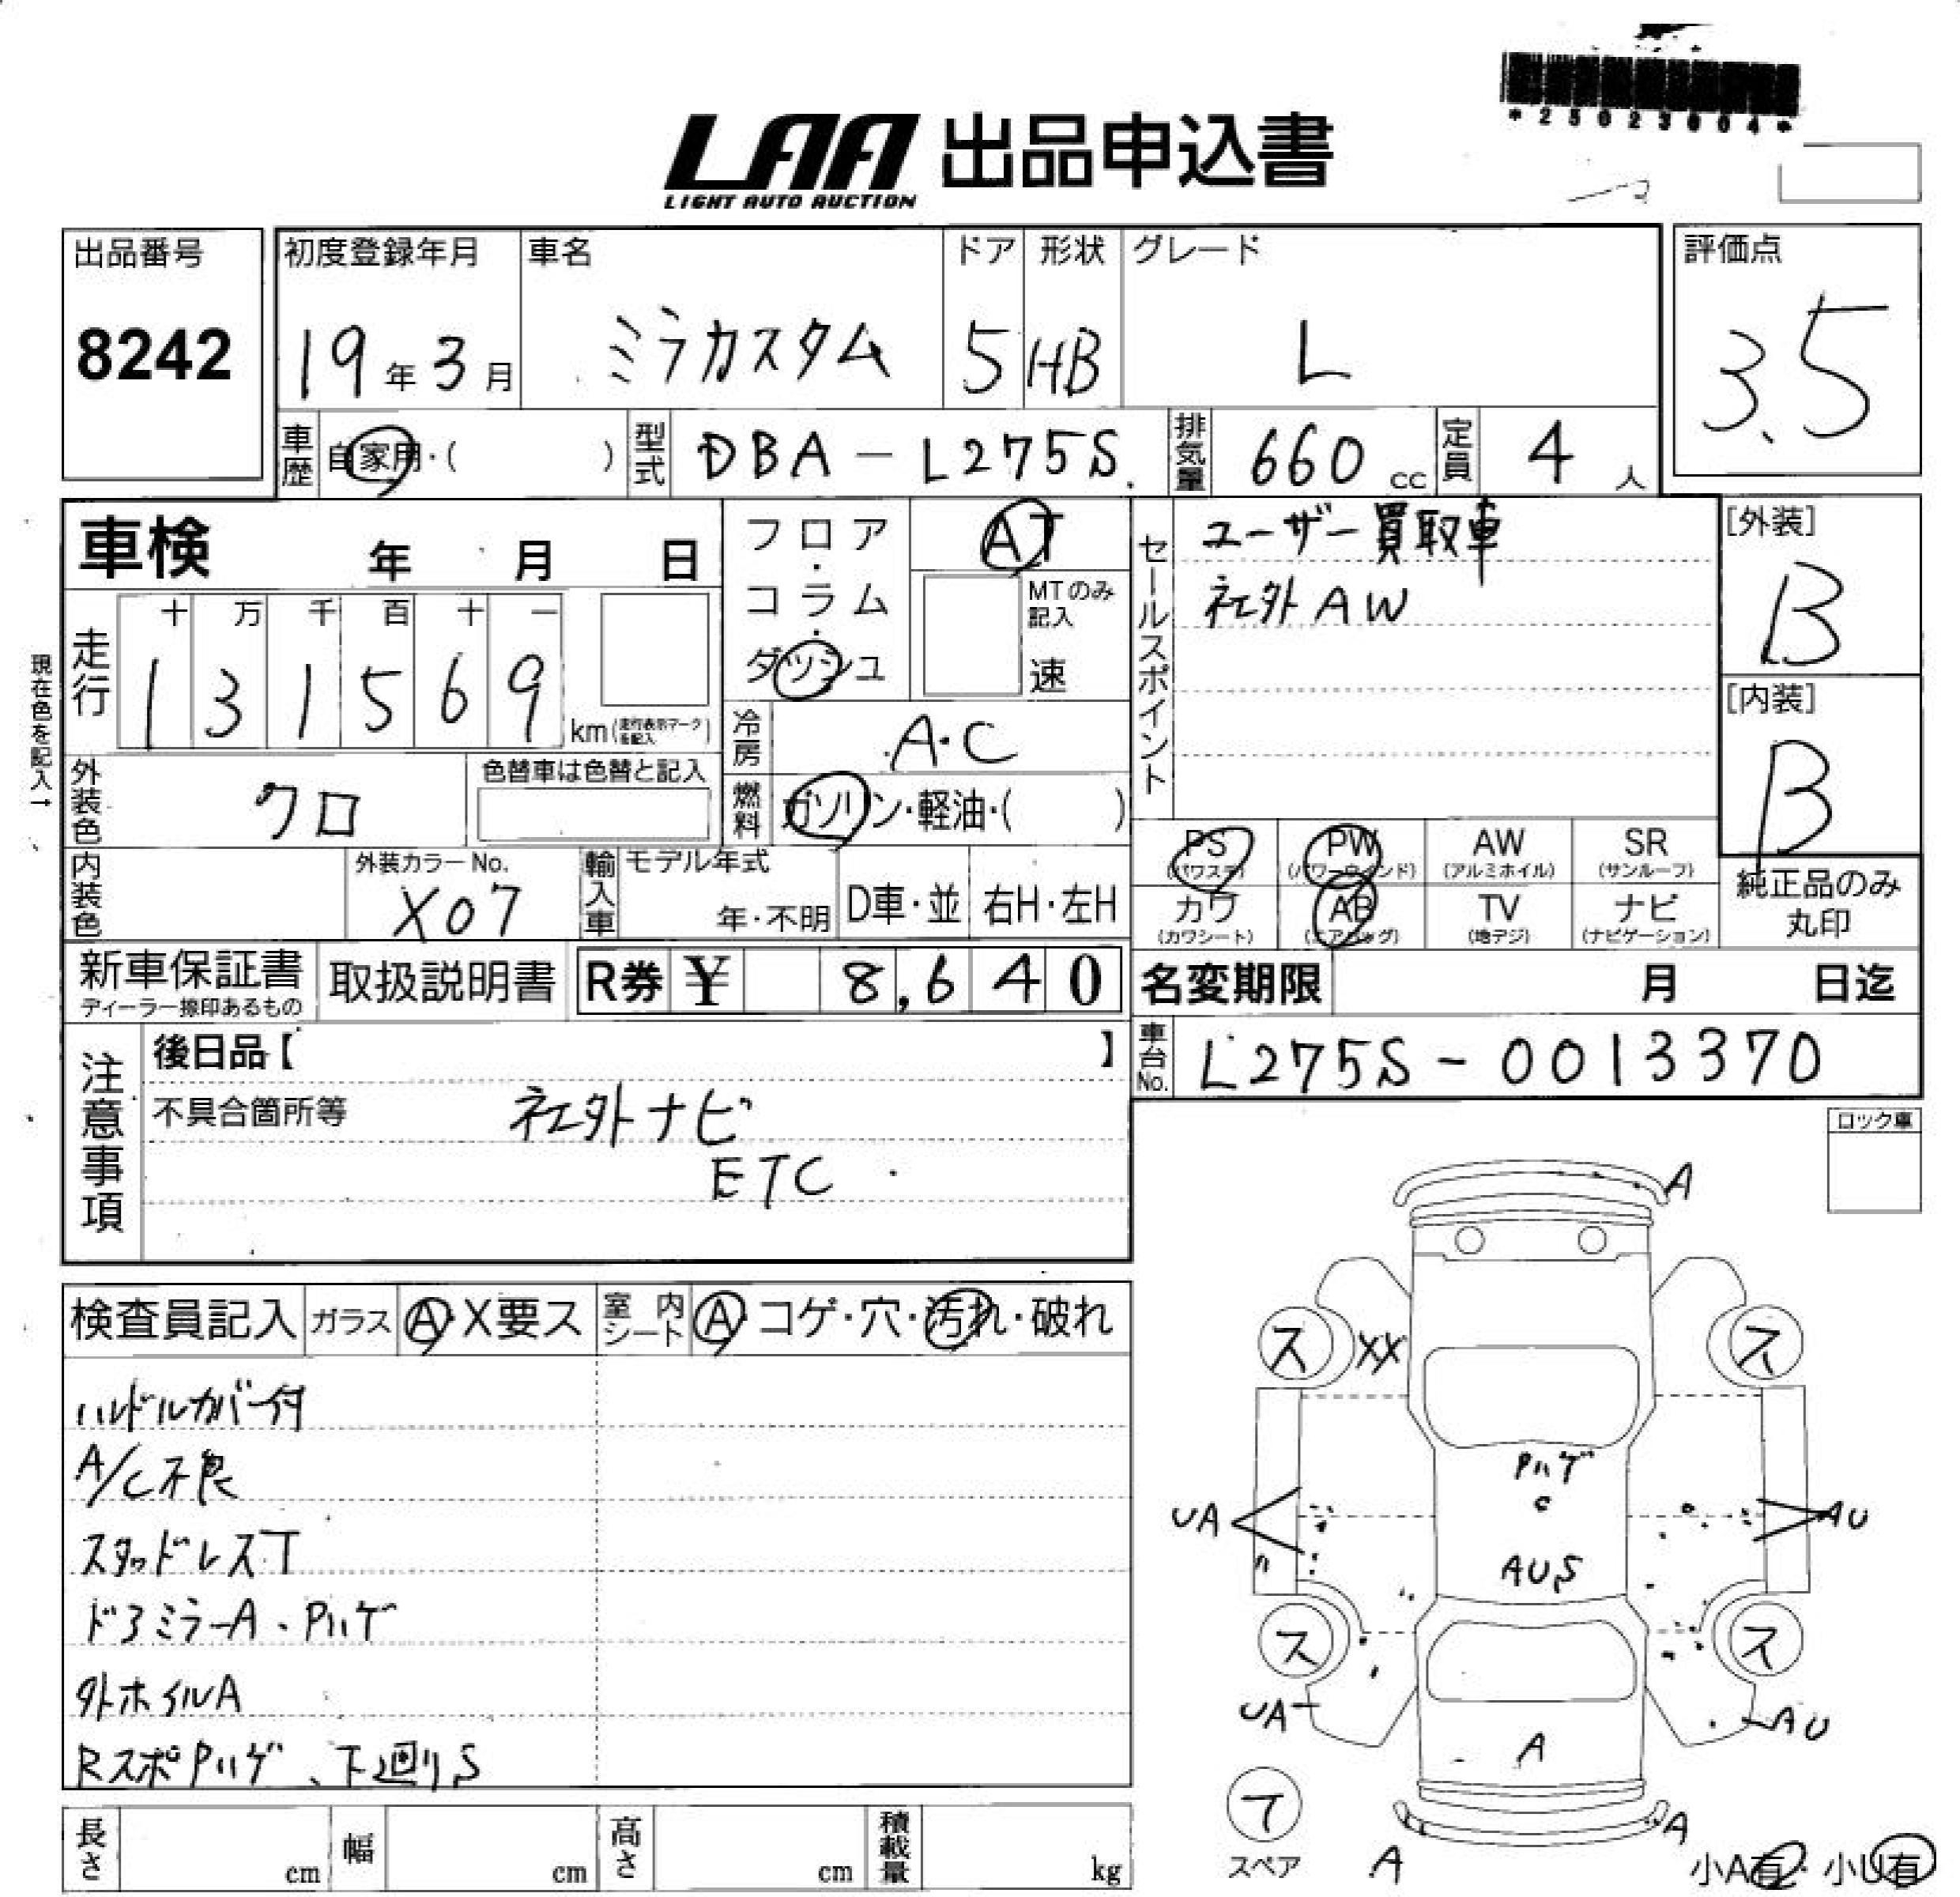 *25023004*
LAA 出品申込書
LIGHT AUTO AUCTION
出品番号 初度登録年月 車名 ドア 形状 グレード 評価点
8242 19年3月 ミラカスタム 5 HB L 3.5
車歴 自家用・( ) 型式 DBA-L275S 排気量 660cc 定員 4人
車検 年 月 日
フロア・コラム・ダッシュ
AT
MTのみ記入
速
セールスポイント
ユーザー買取車
社外AW
[外装]
B
[内装]
B
走行 十 万 千 百 十 一
1 3 1 5 6 9 km(走行表示マークを記入)
現在色を記入→
冷房 A・C
外装色 クロ 色替車は色替と記入
燃料 ガソリン・軽油・( )
PS (パワステ) PW (パワーウインド) AW (アルミホイル) SR (サンルーフ)
カワ (カワシート) AB (エアバッグ) TV (地デジ) ナビ (ナビゲーション)
純正品のみ丸印
内装色 外装カラーNo. X07 輸入車 モデル年式 年・不明 D車・並 右H・左H
新車保証書 ディーラー捺印あるもの 取扱説明書 R券 ¥ 8,640 名変期限 月 日迄
車台No. L275S-0013370
注意事項
後日品【 】
不具合箇所等 社外ナビ
ETC
ロック車
検査員記入 ガラス A・X要ス 室内シート A・コゲ・穴・汚れ・破れ
ハンドルカバー付
A/C不良
スタッドレスT
ドアミラーA、Pハゲ
外ホイルA
RスポPハゲ、下廻りS
A
ス XX ス
Pハゲ
C
UA AU
〃
AUS
ス ス
UA AU
A
テ
スペア
A A
小A有・小U有
長さ cm 幅 cm 高さ cm 積載量 kg